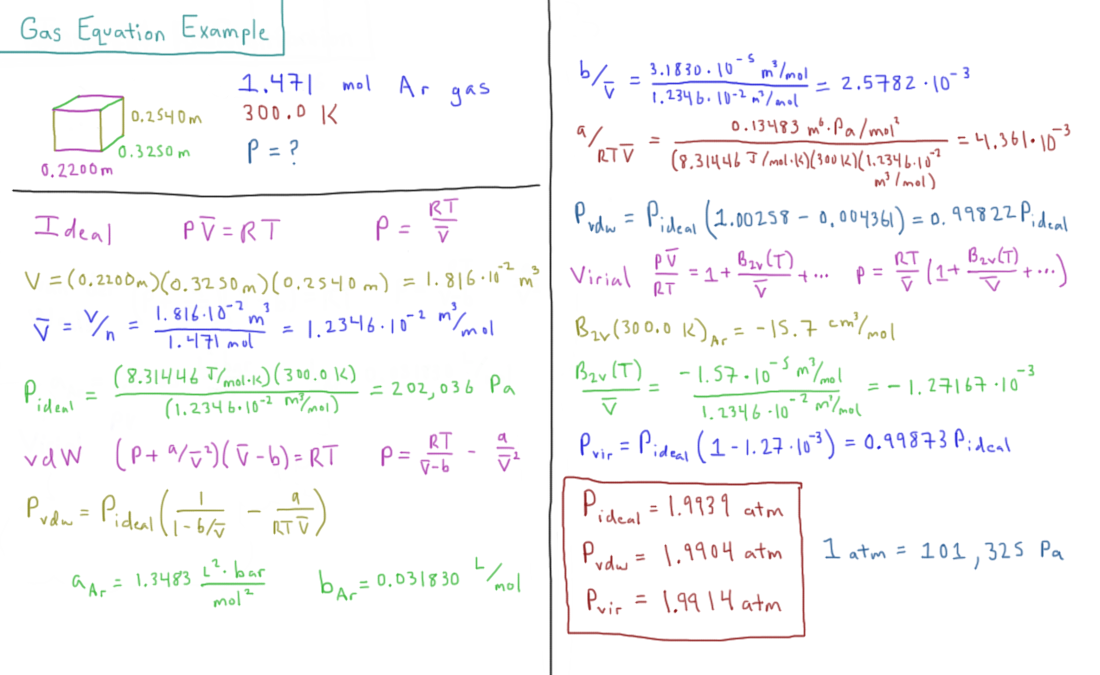 Gas Equation Example
1.471 mol Ar gas
300.0 K
P = ?
0.2540 m
0.3250 m
0.2200 m
Ideal P V̅ = RT P = RT/V̅
V = (0.2200 m)(0.3250 m)(0.2540 m) = 1.816·10⁻² m³
V̅ = V/n = 1.816·10⁻² m³ / 1.471 mol = 1.2346·10⁻² m³/mol
P_ideal = (8.31446 J/mol·K)(300.0 K) / (1.2346·10⁻² m³/mol) = 202,036 Pa
vdW (P + a/V̅²)(V̅ - b) = RT P = RT/(V̅-b) - a/V̅²
P_vdw = P_ideal (1/(1 - b/V̅) - a/(RTV̅))
a_Ar = 1.3483 L²·bar/mol² b_Ar = 0.031830 L/mol
b/V̅ = 3.1830·10⁻⁵ m³/mol / 1.2346·10⁻² m³/mol = 2.5782·10⁻³
a/RTV̅ = 0.13483 m⁶·Pa/mol² / (8.31446 J/mol·K)(300 K)(1.2346·10⁻² m³/mol) = 4.361·10⁻³
P_vdw = P_ideal (1.00258 - 0.004361) = 0.99822 P_ideal
Virial PV̅/RT = 1 + B₂ᵥ(T)/V̅ + ... P = RT/V̅ (1 + B₂ᵥ(T)/V̅ + ...)
B₂ᵥ(300.0 K)_Ar = -15.7 cm³/mol
B₂ᵥ(T)/V̅ = -1.57·10⁻⁵ m³/mol / 1.2346·10⁻² m³/mol = -1.27167·10⁻³
P_vir = P_ideal (1 - 1.27·10⁻³) = 0.99873 P_ideal
P_ideal = 1.9939 atm
P_vdw = 1.9904 atm
P_vir = 1.9914 atm
1 atm = 101,325 Pa